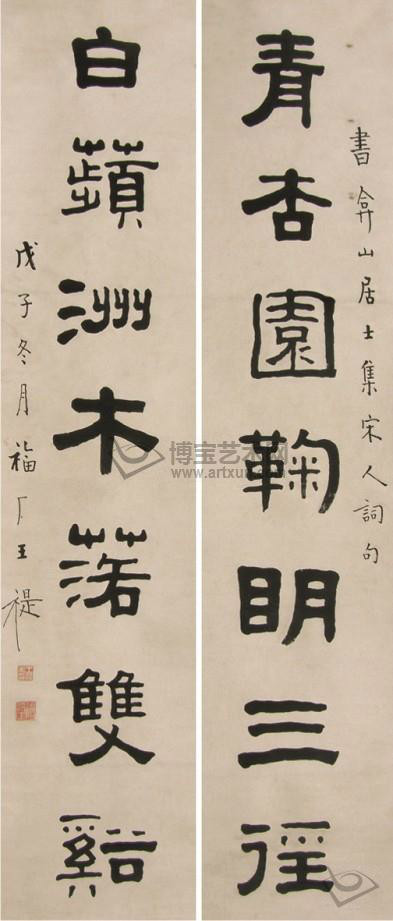 書弇山居士集宋人詞句
青杏園鞠明三徑
白蘋洲木落雙谿
戊子冬月福厂王禔
博宝艺术网
www.artxun.com